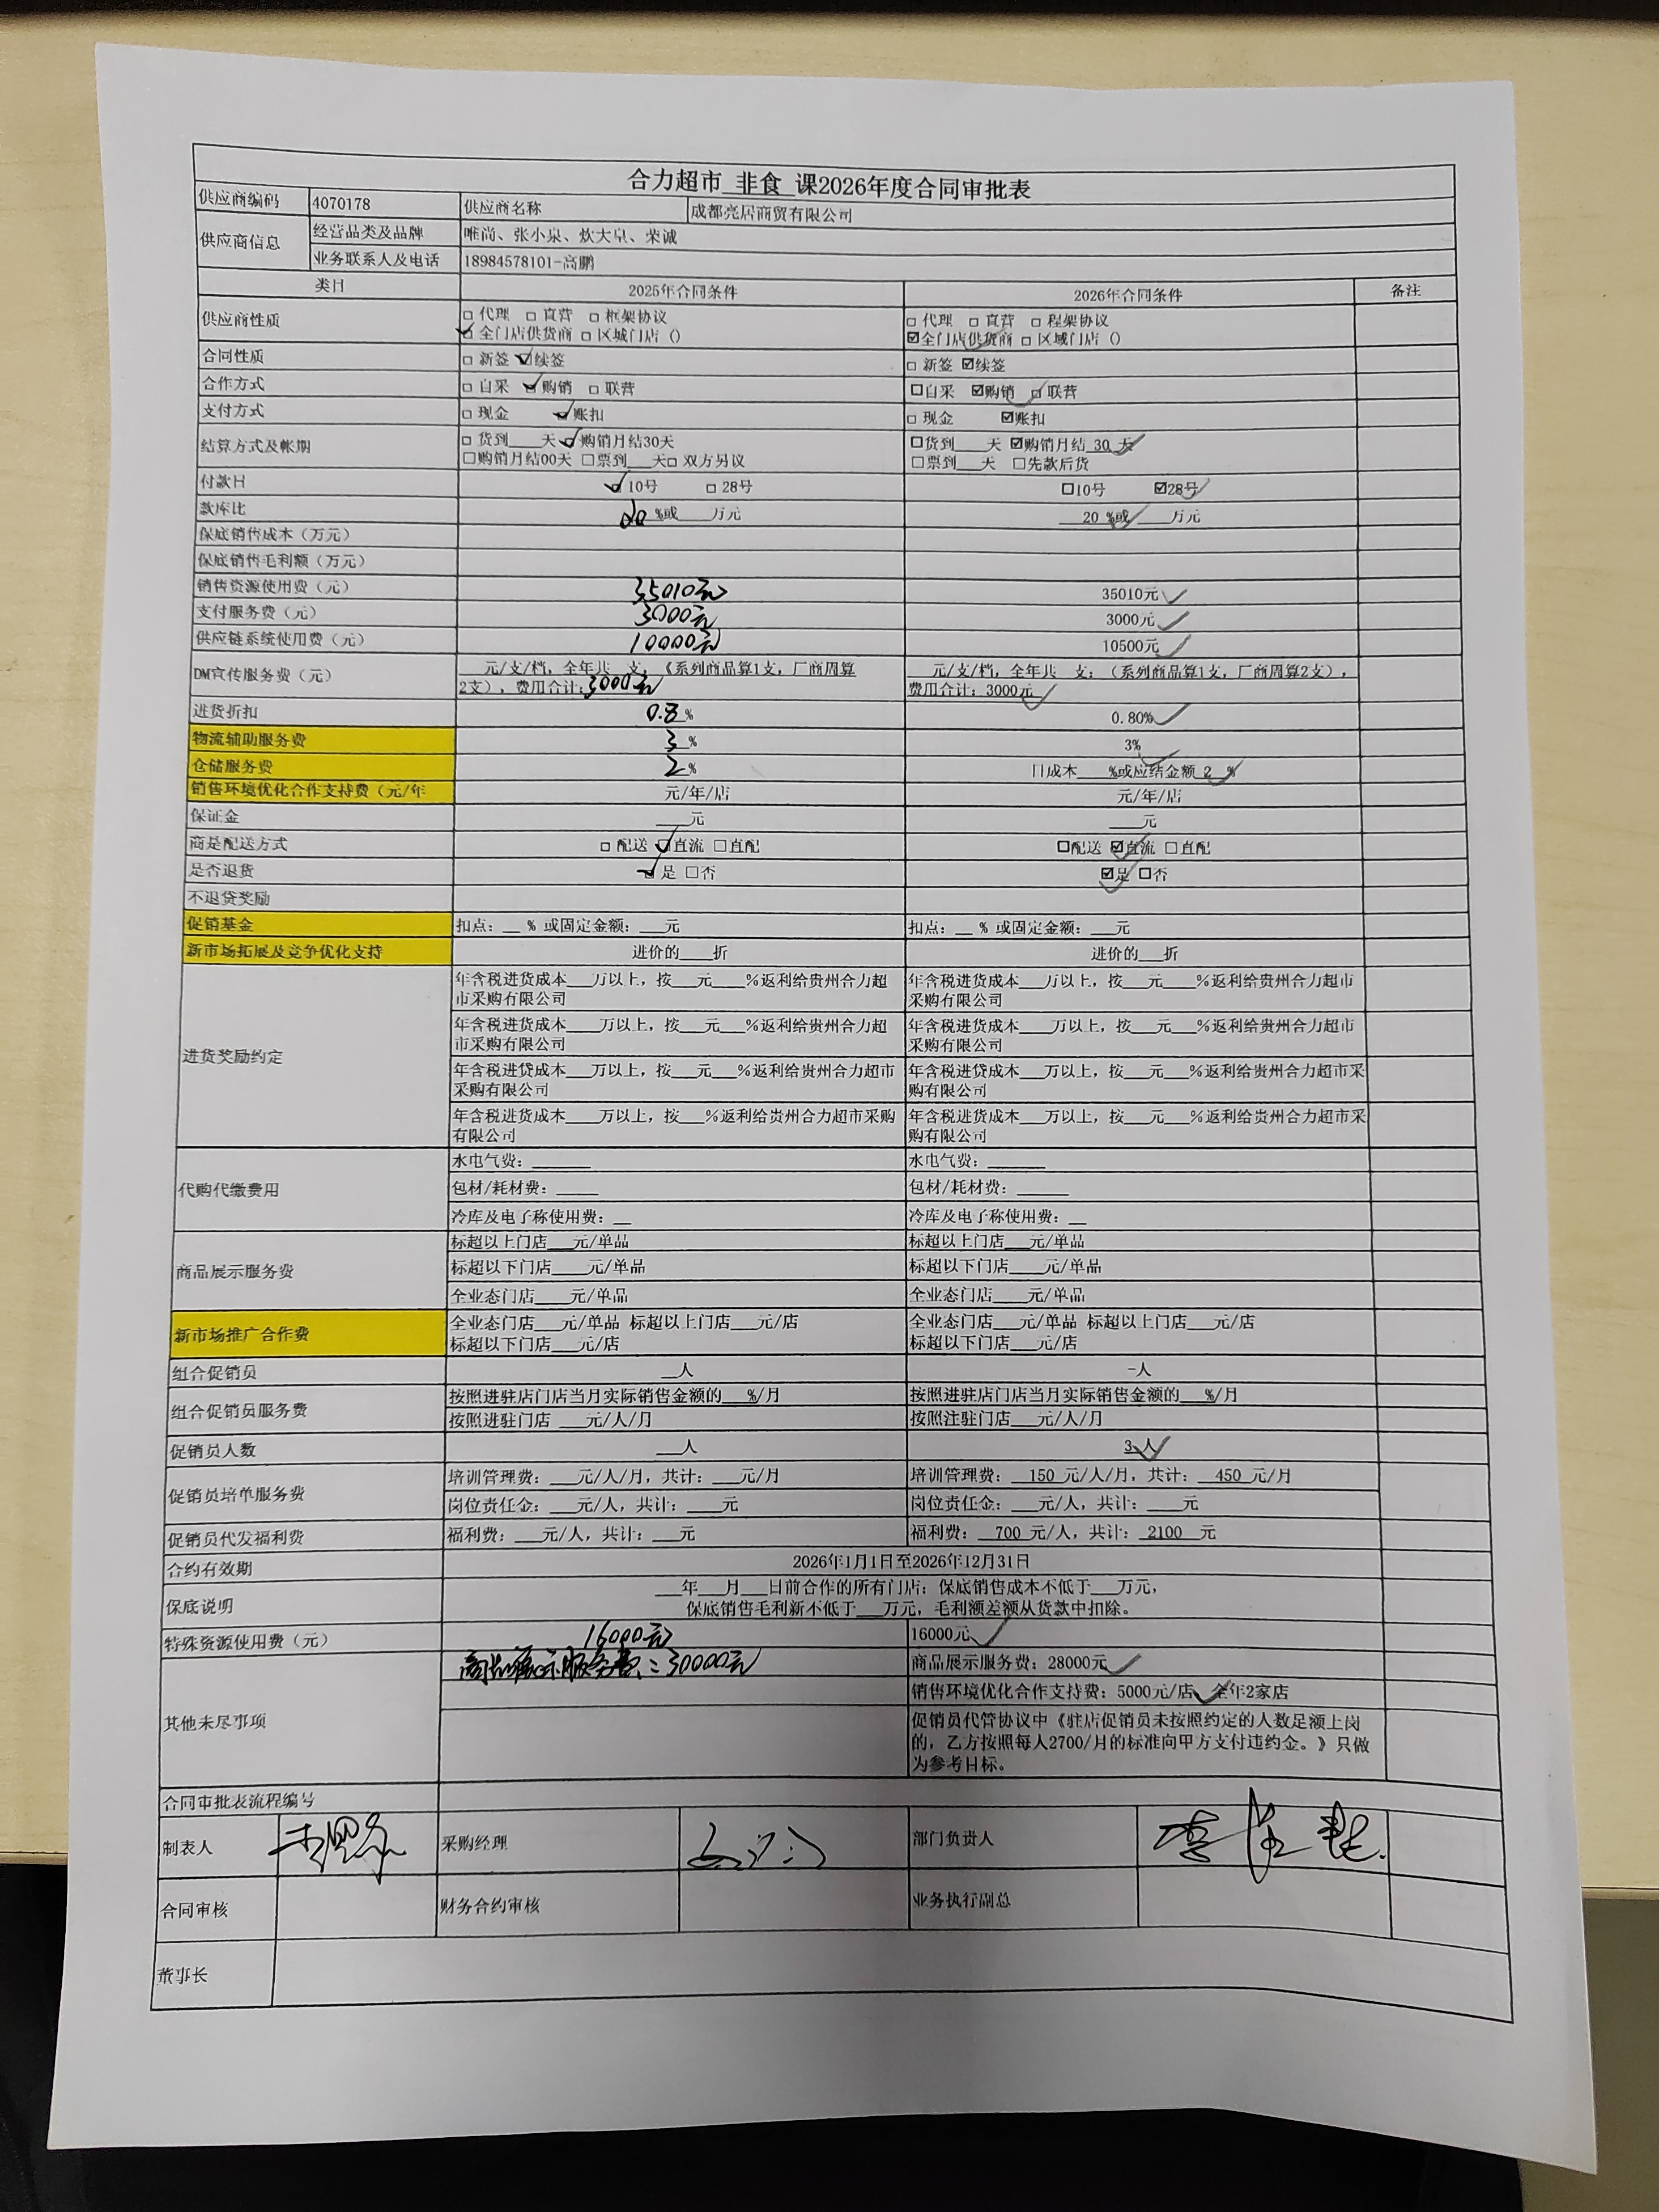 合力超市 非食 课2026年度合同审批表
供应商编码 4070178 供应商名称 成都亮居商贸有限公司
供应商信息 经营品类及品牌 唯尚、张小泉、炊大皇、荣诚
业务联系人及电话 18984578101-高鹏
类目 2025年合同条件 2026年合同条件 备注
供应商性质 □ 代理 □ 直营 □ 框架协议 □ 代理 □ 直营 □ 程架协议
☑ 全门店供货商 □ 区域门店（） ☑全门店供货商 □ 区域门店（）
合同性质 □ 新签 ☑续签 □ 新签 ☑续签
合作方式 □ 自采 ☑购销 □ 联营 □自采 ☑购销 □ 联营
支付方式 □ 现金 ☑账扣 □ 现金 ☑账扣
结算方式及帐期 □ 货到___天 ☑购销月结30天 □货到___天 ☑购销月结 30 天
□购销月结00天 □票到___天□ 双方另议 □票到___天 □先款后货
付款日 ☑10号 □ 28号 □10号 ☑28号
款库比 20 %或___万元 20 %或___万元
保底销售成本（万元）
保底销售毛利额（万元）
销售资源使用费（元） 35010元 35010元
支付服务费（元） 3000元 3000元
供应链系统使用费（元） 10000元 10500元
DM宣传服务费（元） ___元/支/档，全年共__支，《系列商品算1支，厂商周算 ___元/支/档，全年共__支；（系列商品算1支，厂商周算2支），
2支），费用合计：3000元 费用合计：3000元
进货折扣 0.8 % 0.80%
物流辅助服务费 3 % 3%
仓储服务费 2 % 口成本___%或应结金额 2 %
销售环境优化合作支持费（元/年 元/年/店 元/年/店
保证金 ___元 ___元
商是配送方式 □ 配送 ☑直流 □直配 □配送 ☑直流 □直配
是否退货 ☑是 □否 ☑是 □否
不退贷奖励
促销基金 扣点：__ % 或固定金额：___元 扣点：__ % 或固定金额：___元
新市场拓展及竞争优化支持 进价的___折 进价的___折
进货奖励约定 年含税进货成本___万以上，按___元___%返利给贵州合力超 年含税进货成本___万以上，按___元___%返利给贵州合力超市
市采购有限公司 采购有限公司
年含税进货成本___万以上，按___元___%返利给贵州合力超 年含税进货成本___万以上，按___元___%返利给贵州合力超市
市采购有限公司 采购有限公司
年含税进贷成本___万以上，按___元___%返利给贵州合力超市 年含税进货成本___万以上，按___元___%返利给贵州合力超市采
采购有限公司 购有限公司
年含税进货成本___万以上，按___%返利给贵州合力超市采购 年含税进货成本___万以上，按___元___%返利给贵州合力超市采
有限公司 购有限公司
代购代缴费用 水电气费：______ 水电气费：______
包材/耗材费：____ 包材/耗材费：_____
冷库及电子称使用费：__ 冷库及电子称使用费：__
商品展示服务费 标超以上门店___元/单品 标超以上门店___元/单品
标超以下门店___元/单品 标超以下门店___元/单品
全业态门店___元/单品 全业态门店___元/单品
新市场推广合作费 全业态门店___元/单品 标超以上门店___元/店 全业态门店___元/单品 标超以上门店___元/店
标超以下门店___元/店 标超以下门店___元/店
组合促销员 __人 -人
组合促销员服务费 按照进驻店门店当月实际销售金额的___%/月 按照进驻店门店当月实际销售金额的___%/月
按照进驻门店 ___元/人/月 按照注驻门店___元/人/月
促销员人数 ___人 3 人
促销员培单服务费 培训管理费：___元/人/月，共计：___元/月 培训管理费： 150 元/人/月，共计： 450 元/月
岗位责任金：___元/人，共计：___元 岗位责任金：___元/人，共计：___元
促销员代发福利费 福利费：___元/人，共计：___元 福利费： 700 元/人，共计： 2100 元
合约有效期 2026年1月1日至2026年12月31日
保底说明 ___年___月___日前合作的所有门店；保底销售成本不低于___万元，
保底销售毛利新不低于___万元，毛利额差额从货款中扣除。
特殊资源使用费（元） 16000元 16000元
其他未尽事项 商品展示服务费：30000元 商品展示服务费：28000元
销售环境优化合作支持费：5000元/店，全年2家店
促销员代管协议中《驻店促销员未按照约定的人数足额上岗
的，乙方按照每人2700/月的标准向甲方支付违约金。》只做
为参考目标。
合同审批表流程编号
制表人 采购经理 部门负责人
合同审核 财务合约审核 业务执行副总
董事长